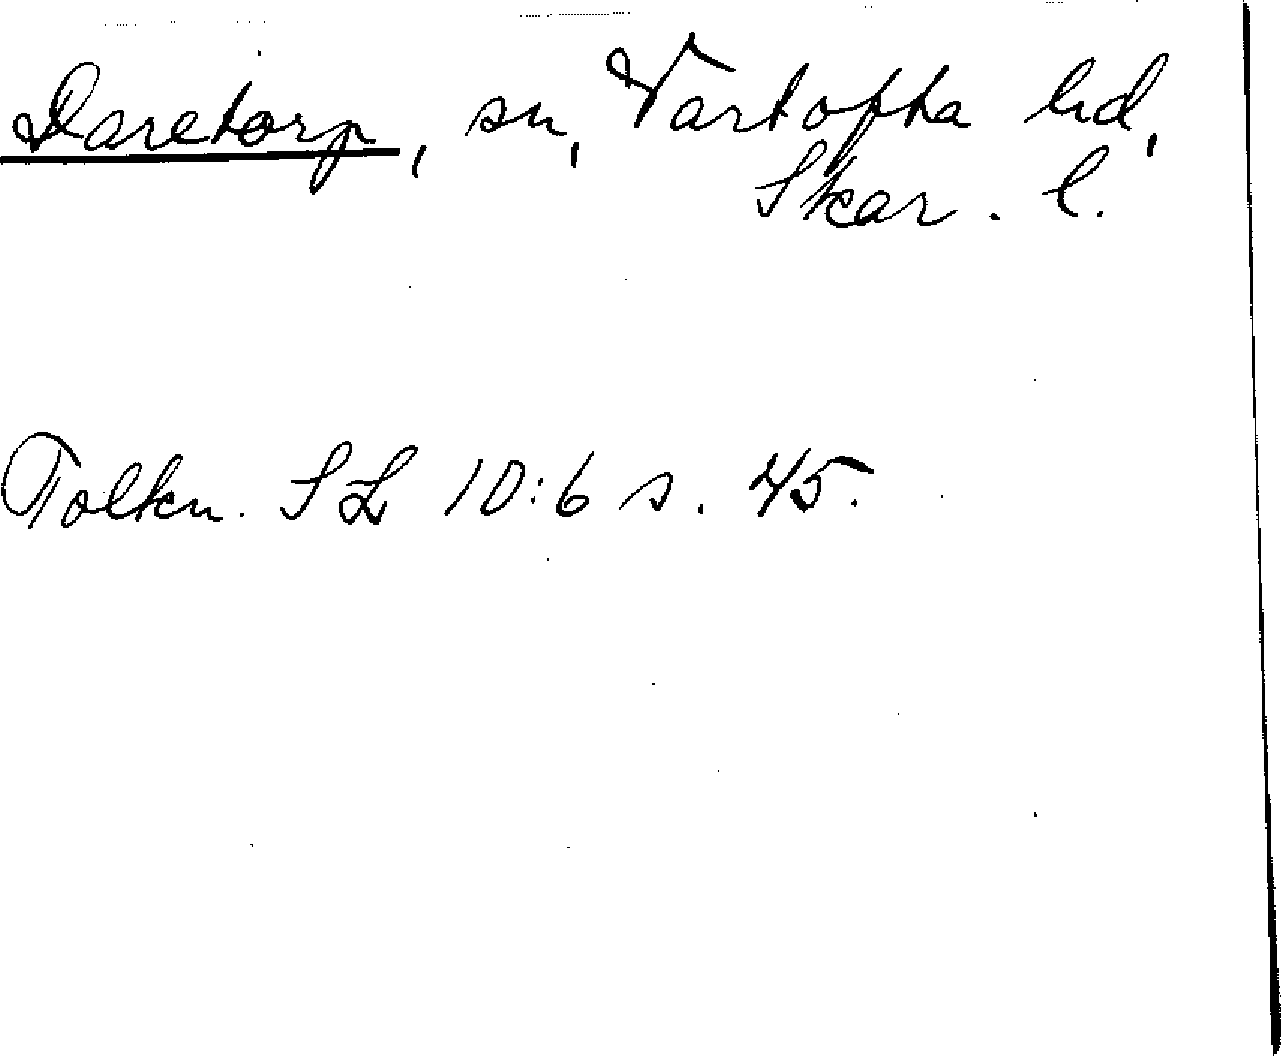 Daretorp, sn, Vartofta hd,
Skar. l.
Tolkn. SL 10:6 s. 45.